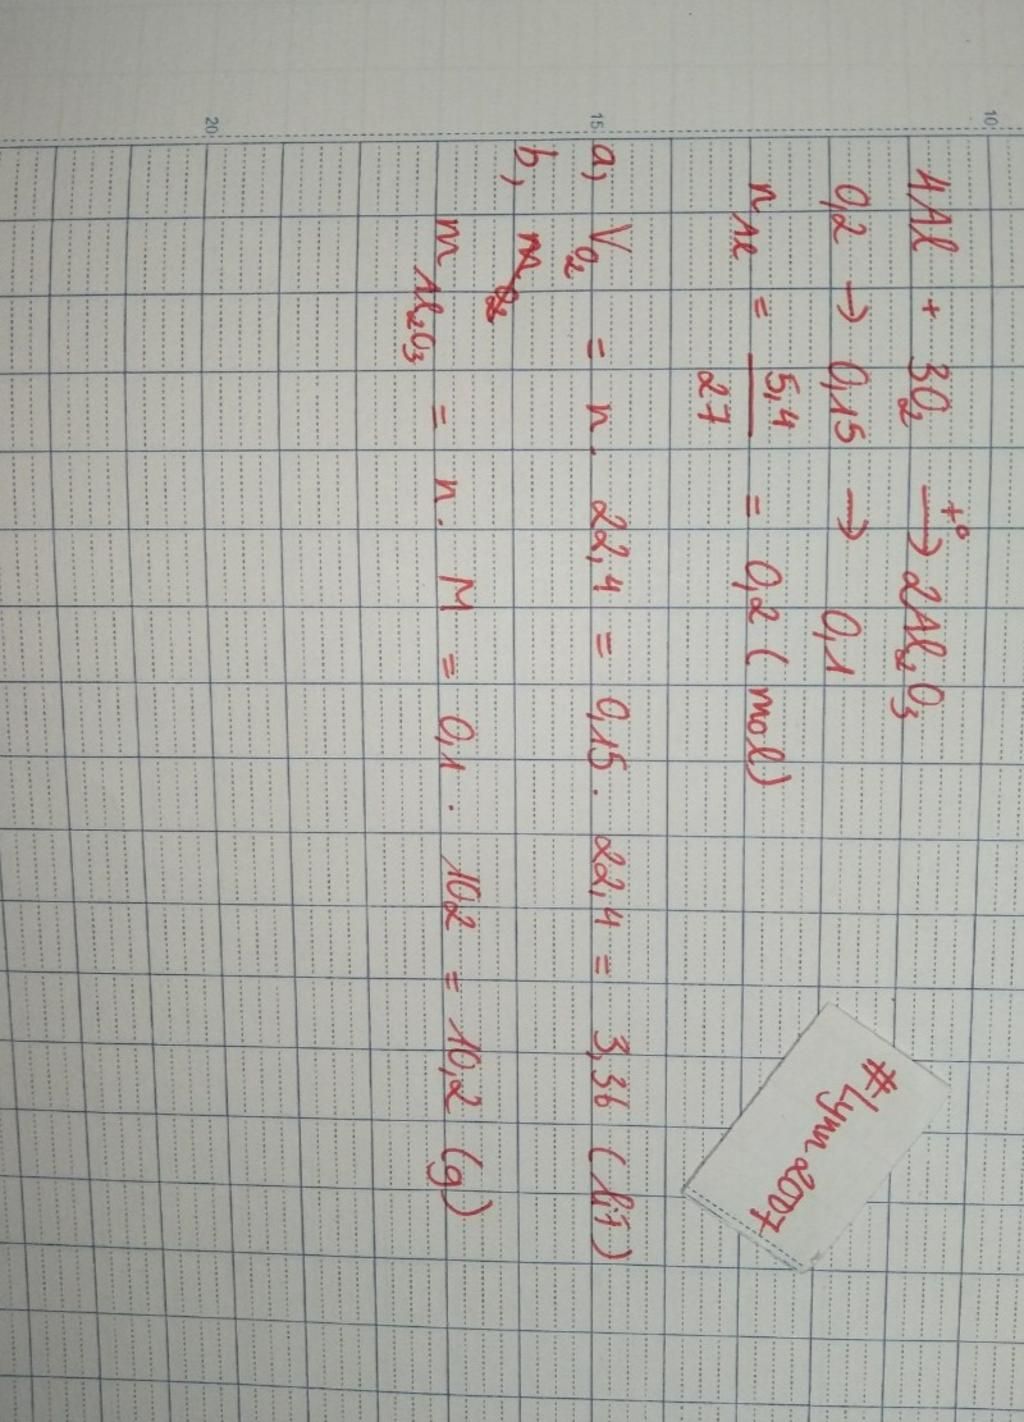 4Al + 3O₂ →t° 2Al₂O₃
0,2 → 0,15 → 0,1
nAl = 5,4/27 = 0,2 (mol)
a, VO₂ = n. 22,4 = 0,15. 22,4 = 3,36 (lít)
b, mO₂
mAl₂O₃ = n. M = 0,1. 102 = 10,2 (g)
#Lynn2007
10
15
20